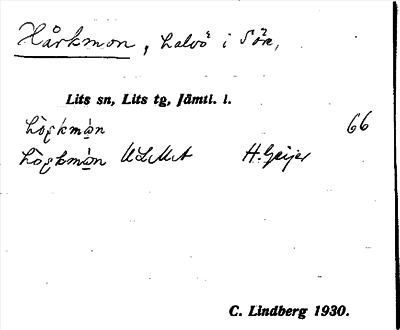 Hårkmon, halvö i
Lits sn, Lits tg, Jämtl. l.
66
ULMA H. Geijer
C. Lindberg 1930.